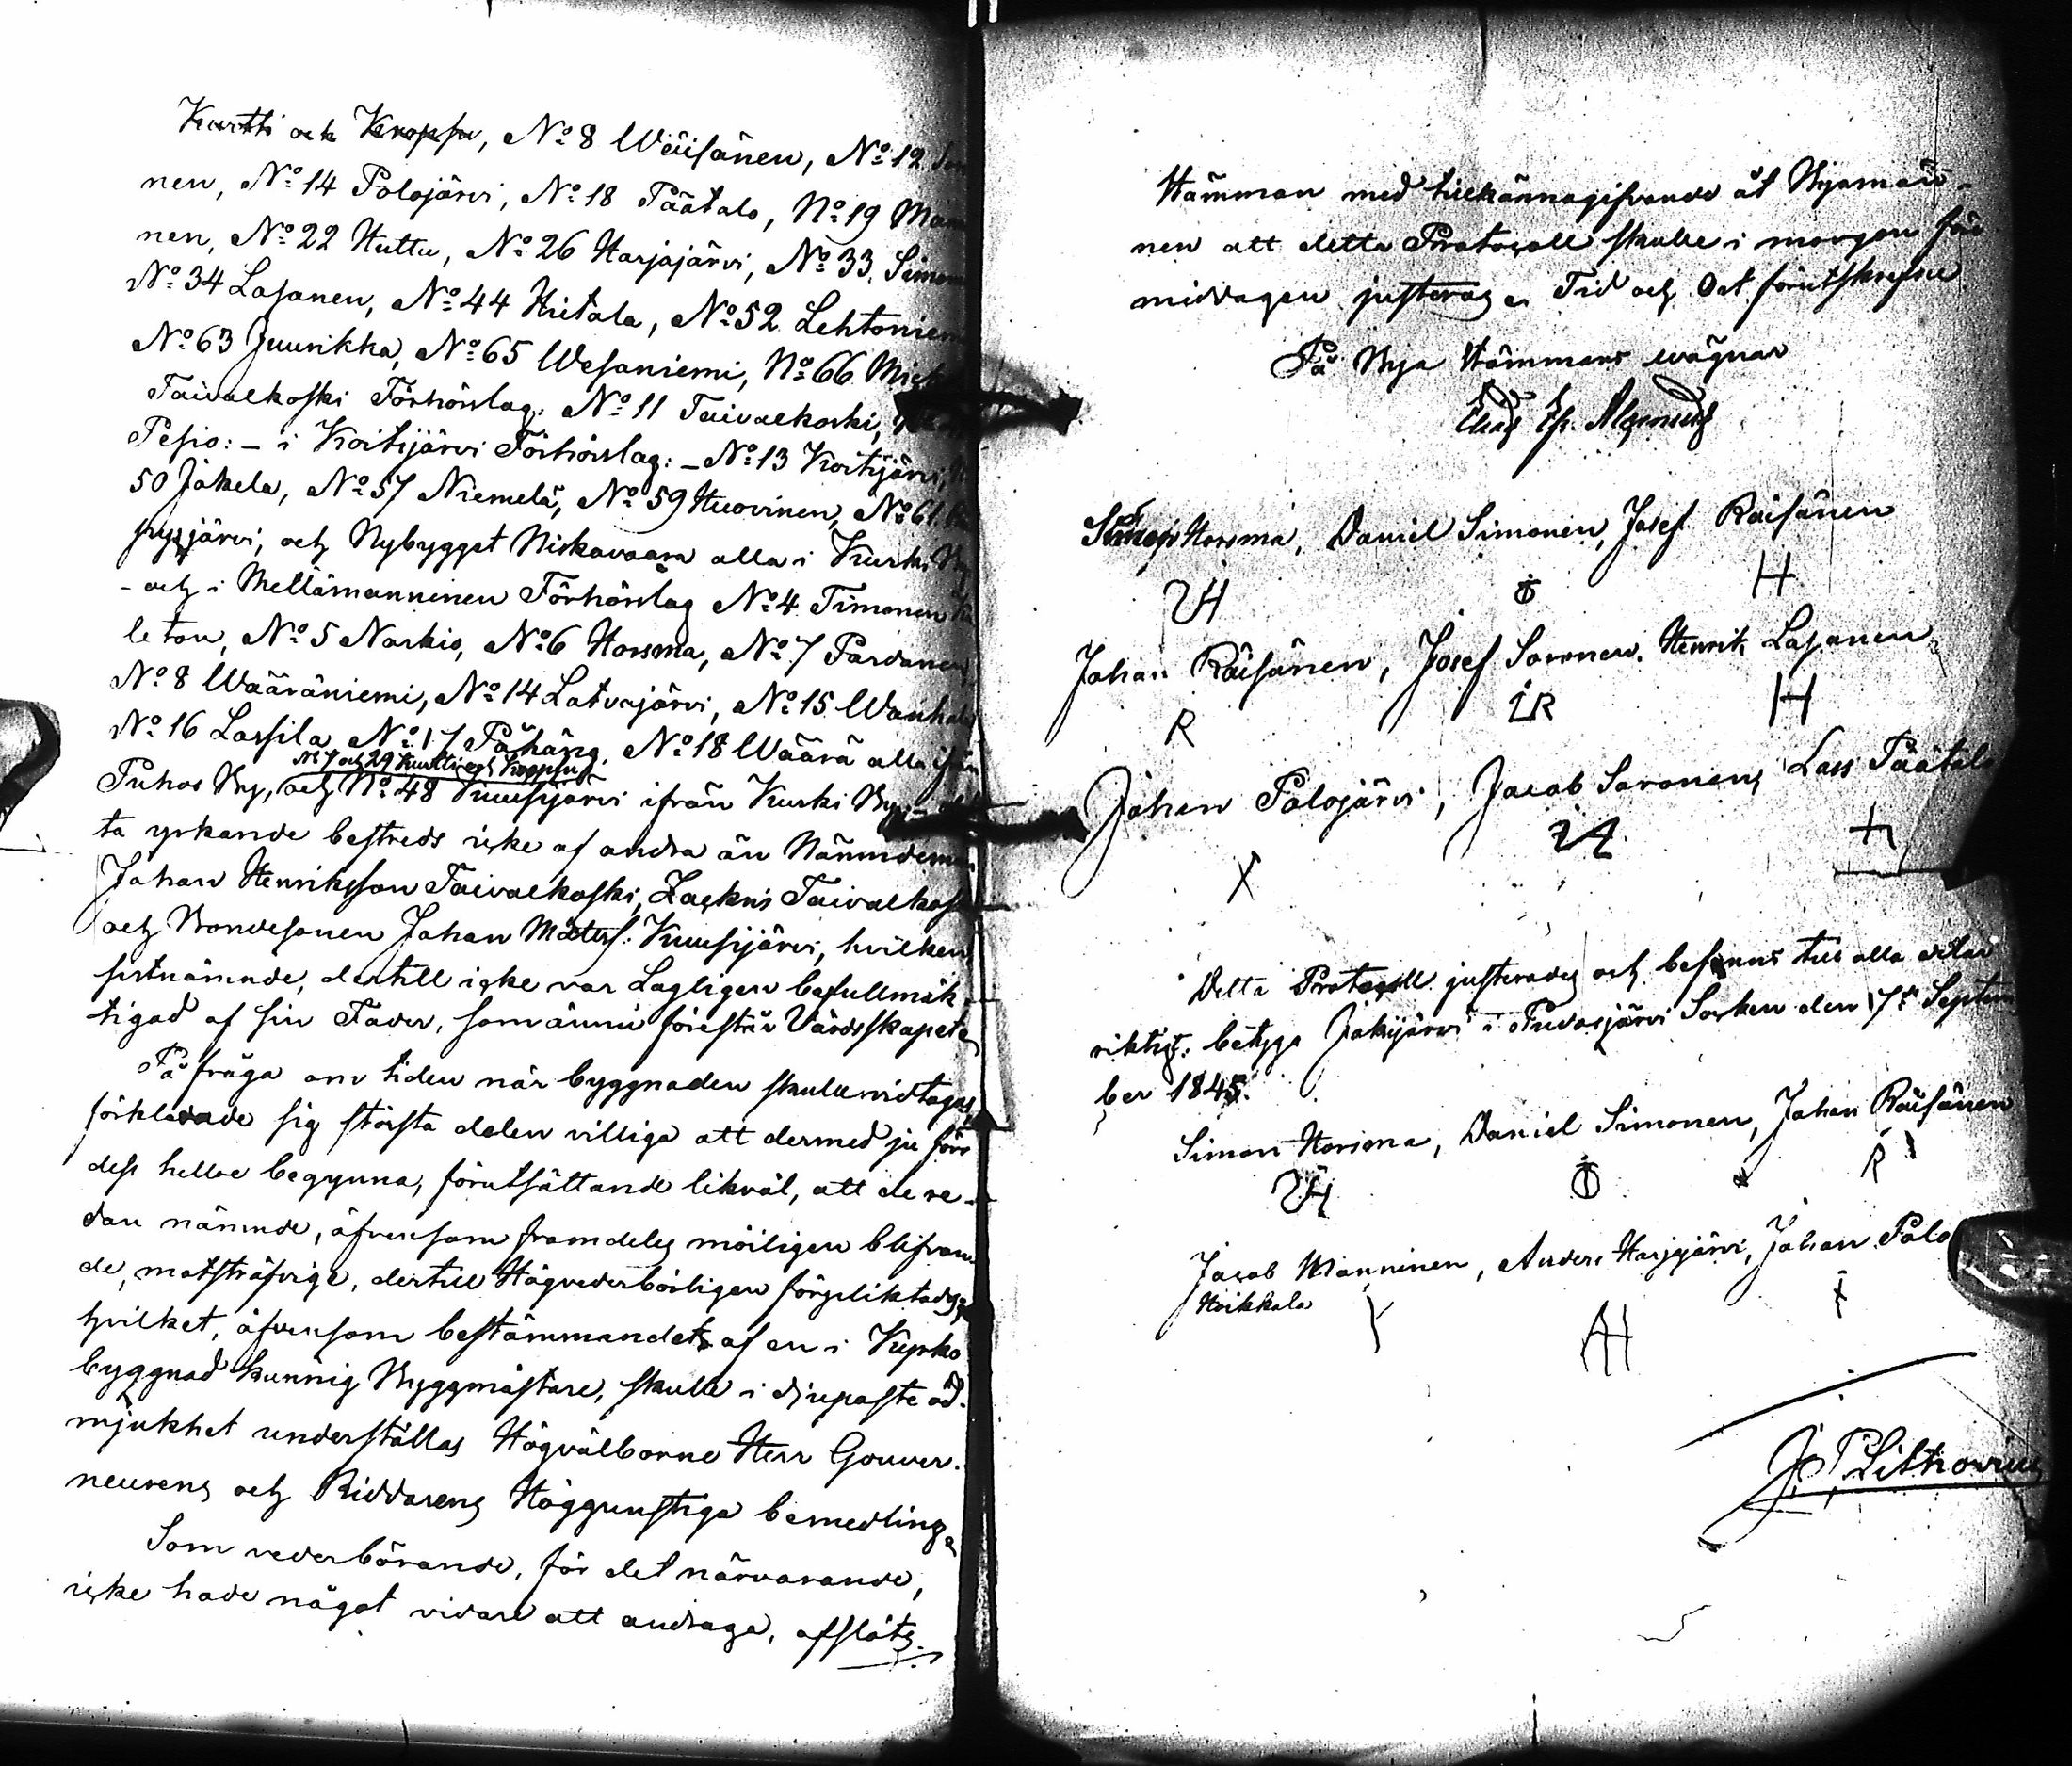 Kurtti och Kroppu, No 8 Wäisänen, No 12
nen, No 14 Polojärvi, No 18 Päätalo, No 19 Man
nen, No 22 Huttu, No 26 Harjajärvi, No 33. Simon
No 34 Lasanen, No 44 Hietala, No 52 Lehtoniem
No 63 Juurikka, No 65 Wesaniemi, No 66
Taivalkoski Förhörslag: No 11 Taivalkoski,
Pesio: - i Koitijärvi Förhörslag: - No 13 Koitijärvi,
50 Jokela, No 57 Niemelä, No 59 Huovinen, No 61
järvi, och Nybygget Niskavaara alla i Kurki By
- och i Metsämanninen Förhörslag No 4 Timonen
leton, No 5 Narkio, No 6 Horsma, No 7 Parvanen,
No 8 Wääräniemi, No 14 Latvajärvi, No 15 Wanhala
No 16 Lassila, No 17 Påhäng, No 18 Wäärä alla ifrån
No 7 och 29 Kurtti och Kroppu
Puhos By, och No 48 Kuusijärvi ifrån Kurki By; -
ta yrkande bestreds icke af andra än Nämndeman
Johan Henriksson Taivalkoski, Zachris Taivalkoski
och Bondesonen Johan Matss: Kuusijärvi, hvilken
sistnämnde, dertill icke var Lagligen befullmäk-
tigad af sin Fader, som ännu förestår Värdskapet.
På fråga om tiden när byggnaden skulle vidtagas,
förklarade sig största delen villiga att dermed ju förr
dess hellre begynna, förutsättande likväl, att de re-
dan nämnde, äfvensom framdeles möiligen blifvan-
de, motsträfvige, dertill Högvederbörligen förpliktades;
hvilket, äfvensom bestämmandet af en i Kyrko
byggnad kunnig Byggmästare, skulle i djupaste öd-
mjukhet underställas Högvälborne Herr Gouver-
neurens och Riddarens Höggunstiga bemedling.
Som vederbörande, för det närvarande,
icke hade något vidare att andraga, afslöts
Stämman med tillkännagifvande åt Byamän-
nen att detta Protocoll skulle i morgon för
middagen justeras. Tid och Ort förutskrefne
På Bya Stämmans wägnar
Simon Horsma, Daniel Simonen, Josef Räisänen
H
Johan Räisänen, Josef Soronen, Henrik Lasanen
R IR H
Johan Polojärvi, Jacob Soronen, Lars Päätalo
X
Detta Protocoll justerades och befanns till alla delar
riktigt: betyga Jokijärvi i Pudasjärvi Socken den 7de Septem
ber 1845.
Simon Horsma, Daniel Simonen, Johan Räisänen
R
Jacob Manninen, Anders Harjajärvi, Johan Polo
Hoikkala
AH